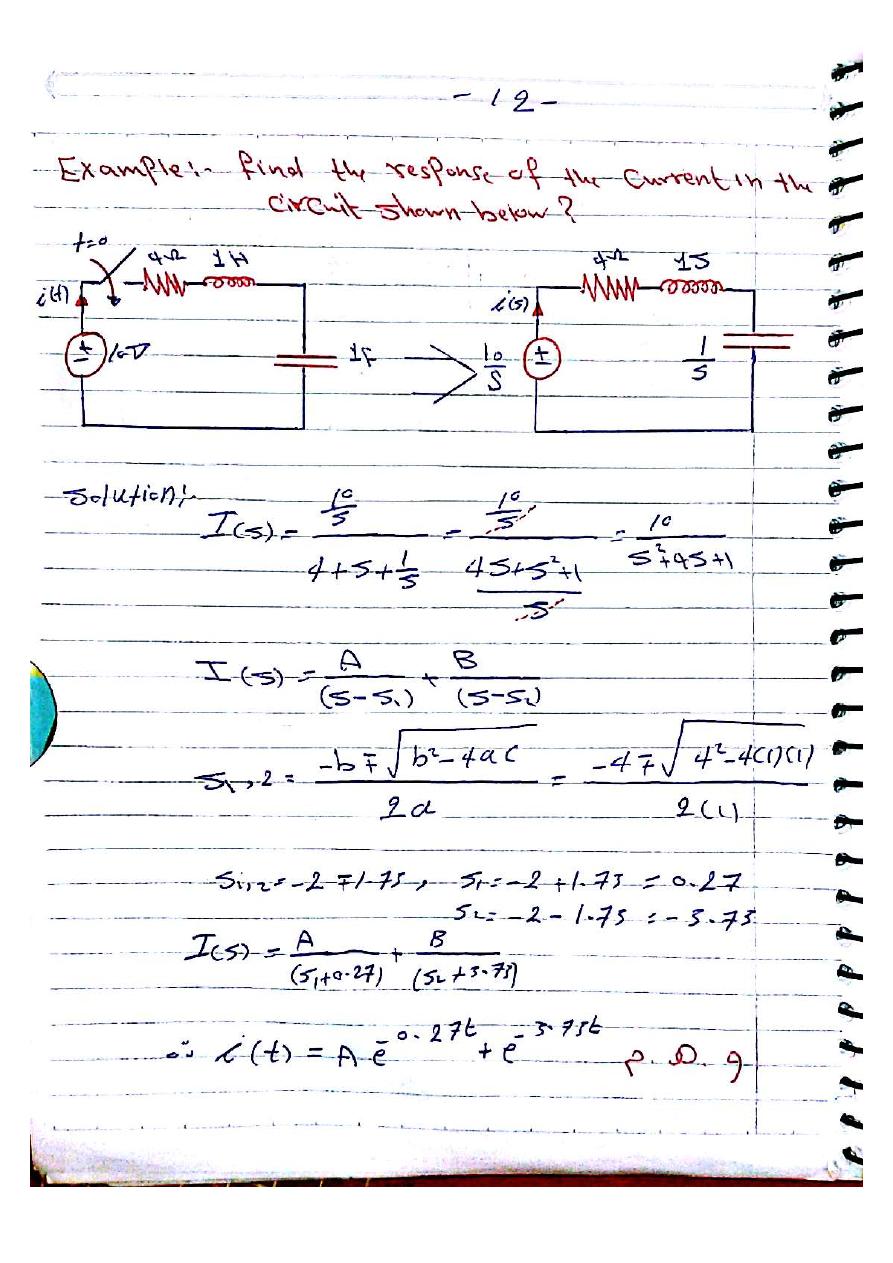 - 12 -
Example:- find the response of the current in the
circuit shown below?
t=0 4Ω 1H 4Ω 1S
i(t) i(s)
10V 1F 10/S 1/S
Solution:-
I(s) = (10/S)/(4+S+1/S) = (10/S)/((4S+S²+1)/S) = 10/(S²+4S+1)
I(s) = A/(S-S₁) + B/(S-S₂)
S₁,₂ = (-b∓√(b²-4ac))/(2a) = (-4∓√(4²-4(1)(1)))/(2(1))
S₁,₂=-2∓1.73, S₁=-2+1.73=0.27
S₂=-2-1.73=-3.73
I(s) = A/(S₁+0.27) + B/(S₂+3.73)
∴ i(t) = A e^-0.27t + e^-3.73t P.O.g